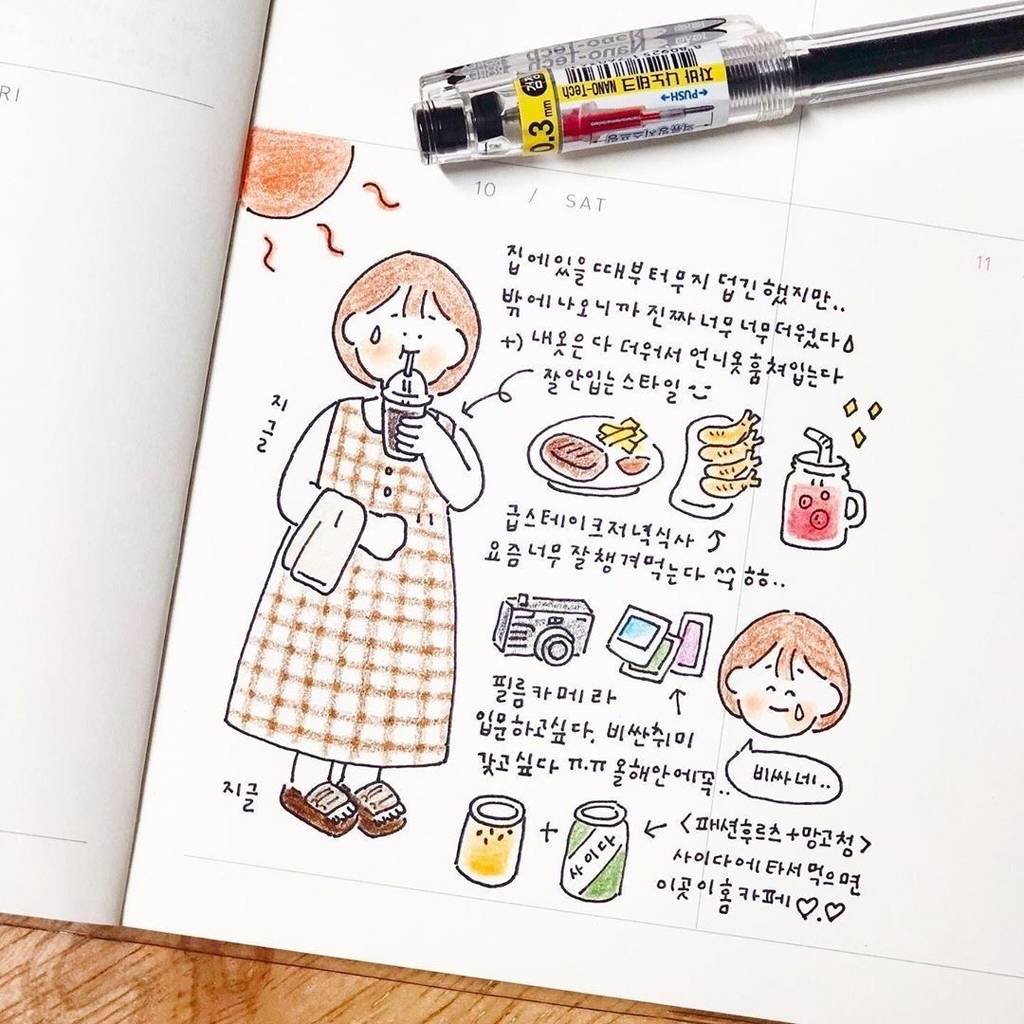 RI
Nano-Tech
자바 나노테크 NANO-Tech
0.3mm
←PUSH→
10 / SAT
11
집에있을때부터무지 덥긴했지만..
밖에나오니까 진짜너무너무더웠다
+) 내옷은다 더워서 언니옷훔쳐입는다
잘안입는스타일
지글
급스테이크저녁식사
요즘너무잘챙겨먹는다 ^^ 하하..
필름카메라
입문하고싶다. 비싼취미
갖고싶다 ㅠ.ㅠ 올해안에꼭..
비싸네..
지글
+
사이다
<패션후르츠+망고청>
사이다에타서먹으면
이곳이홈카페♡.♡